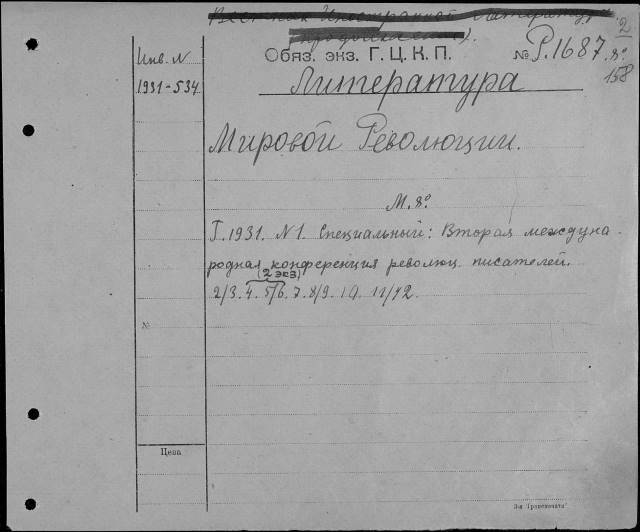 Вестник Иностранной Литературы
(продолжение).
2
Обяз. экз. Г. Ц. К. П.
№ Р.1687. 8°
158
Инв. N
1931-534
Литература
Мировой Революции.
М. 8°
Г. 1931. N1. Специальный: Вторая междуна-
родная конференция революц. писателей.
(2 экз)
2/3. 4. 5/6. 7. 8/9. 10. 11/12.
№
Цена